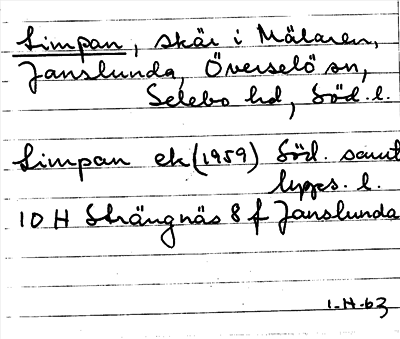 Simpan, skär i Mälaren,
Janslunda, Överselö sn,
Selebo hd, Söd. l.
Simpan ek (1959) Söd. samt
Upps. l.
10 H Strängnäs 8 f Janslunda